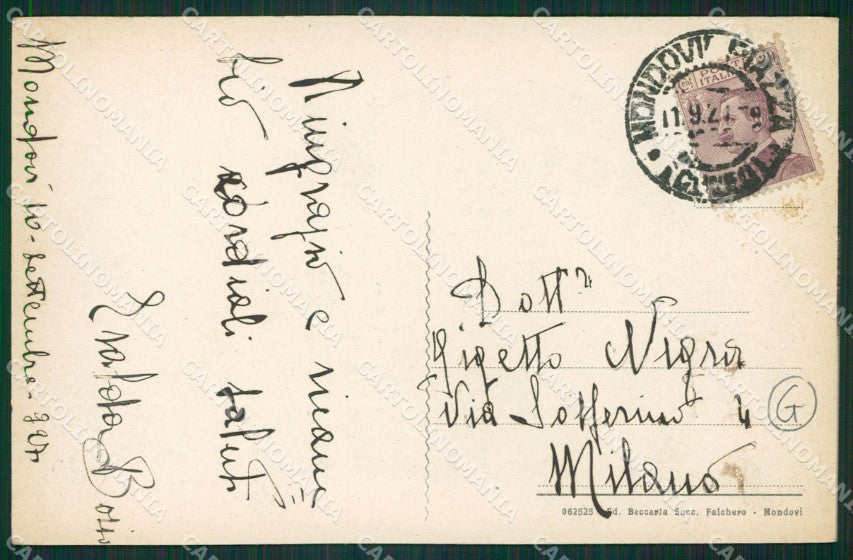 Mondovì 10-settembre-927
Ringrazio e ricam
bio cordiali saluti
Botto
MONDOVI' PIAZZA
11.9.27.-9
POSTE
ITALIANE
Dott.r
Gigetto Negra
Via Solferino 4
Milano
G
962525 - Ed. Beccaria Succ. Falchero - Mondovì
CARTOLINOMANIA